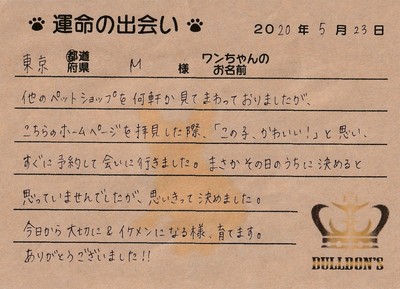 運命の出会い
2020年5月23日
東京 都道府県 M 様 ワンちゃんのお名前
他のペットショップを何軒か見てまわっておりましたが、
こちらのホームページを拝見した際、「この子、かわいい!」と思い、
すぐに予約して会いに行きました。まさかその日のうちに決めると
思っていませんでしたが、思いきって決めました。
今日から大切に&イケメンになる様、育てます。
ありがとうございました!!
BULLBON'S